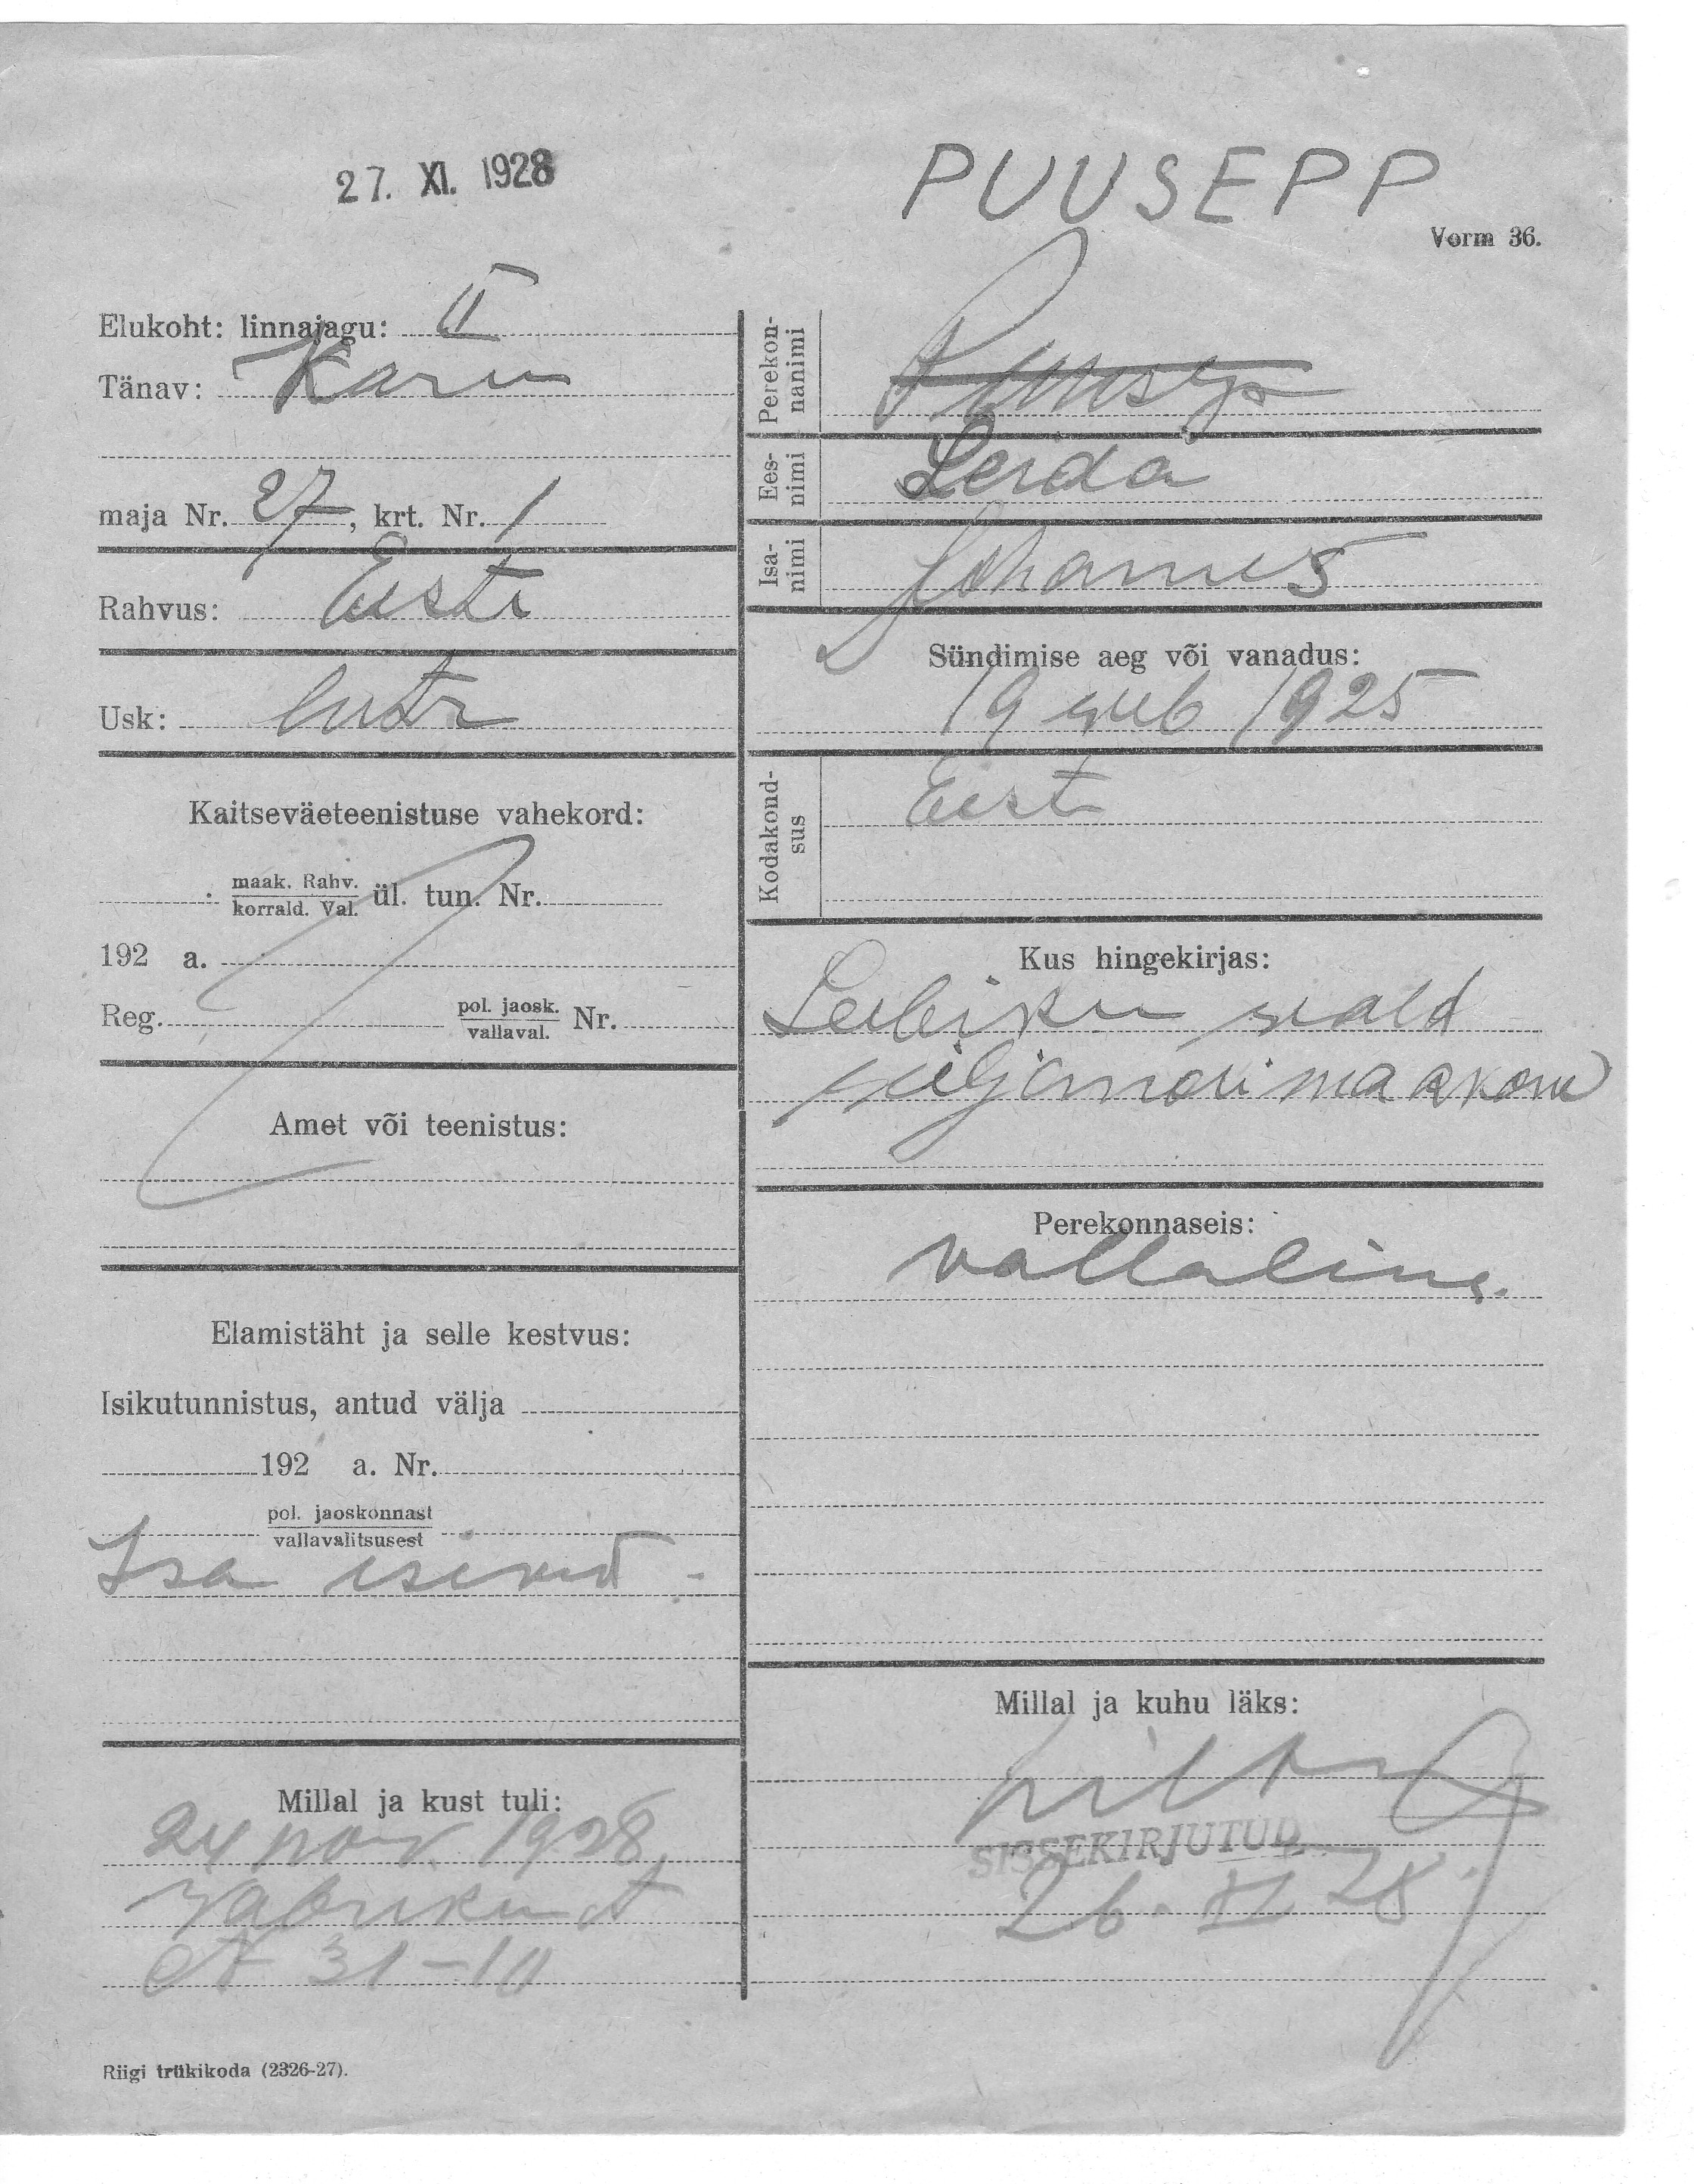 27. XI. 1928
PUUSEPP
Vorm 36.
Elukoht: linnajagu: II
Tänav: Karu
maja Nr. 27, krt. Nr. 1
Rahvus: Eesti
Usk: luter
Kaitseväeteenistuse vahekord:
maak. Rahv.
korrald. Val.
ül. tun. Nr.
192 a.
Reg. pol. jaosk.
vallaval. Nr.
Amet või teenistus:
Elamistäht ja selle kestvus:
Isikutunnistus, antud välja
192 a. Nr.
pol. jaoskonnast
vallavalitsusest
Isa
Millal ja kust tuli:
24 nov. 1928
Vabriku t
№ 31-10
Perekon-
nanimi
Puusep
Ees-
nimi
Leida
Isa-
nimi
Johannes
Sündimise aeg või vanadus:
19 veeb 1925
Kodakond-
sus
Eesti
Kus hingekirjas:
Leebiku vald
Viljandi maakond
Perekonnaseis:
vallaline.
Millal ja kuhu läks:
SISSEKIRJUTUD
26. XI 28
Riigi trükikoda (2326-27).